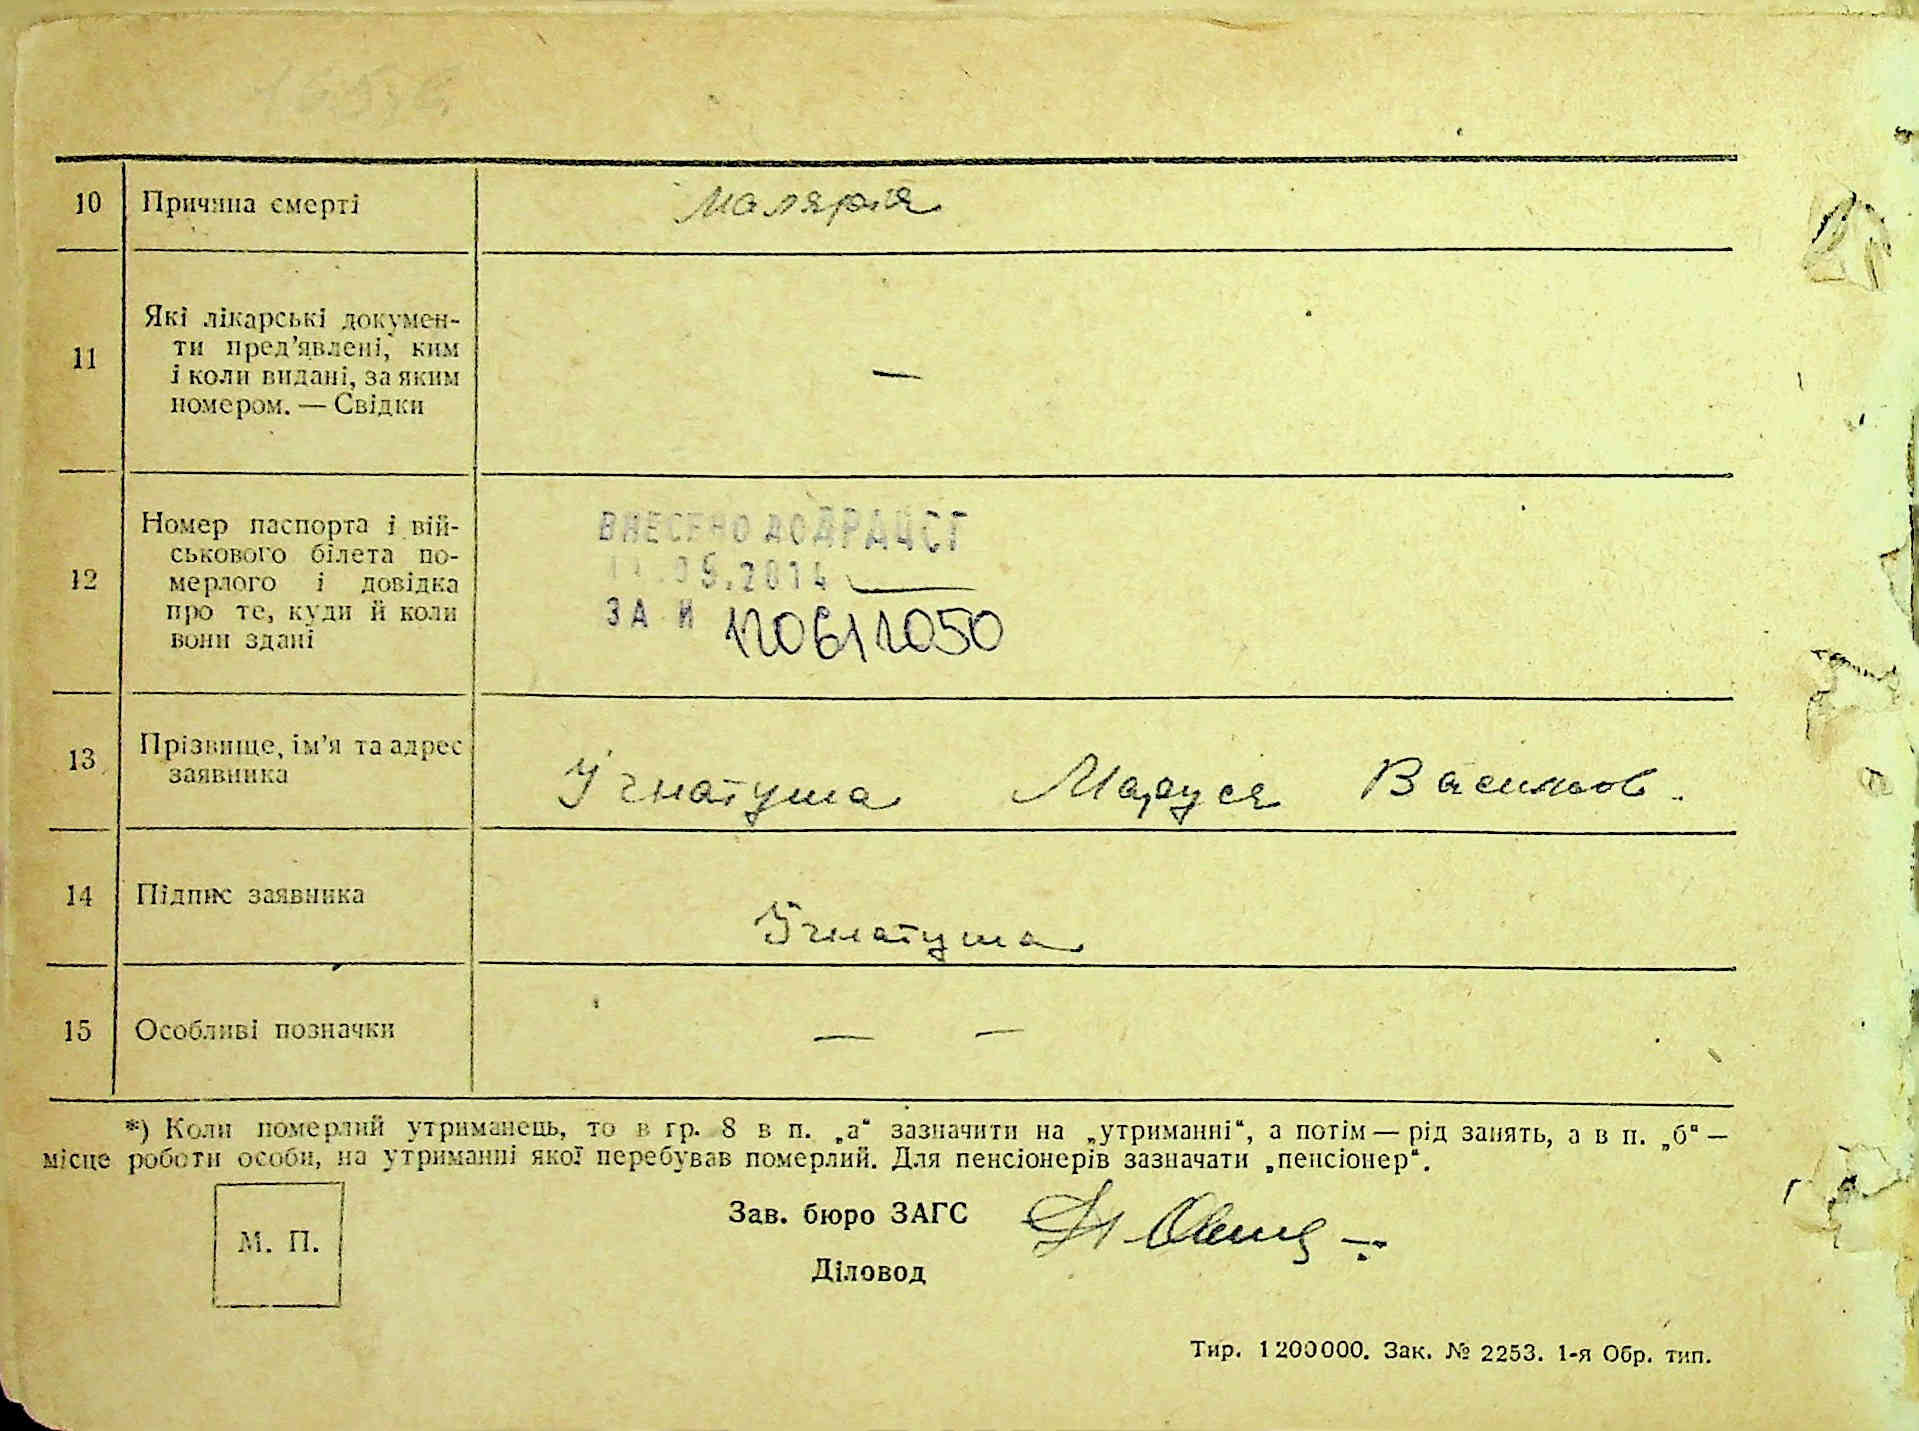 10 Причина смерті Малярія
11 Які лікарські докумен-
ти пред’явлені, ким
і коли видані, за яким
номером. — Свідки —
12 Номер паспорта і вій-
ськового білета по-
мерлого і довідка
про те, куди й коли
вони здані
ВНЕСЕНО ДО ДРАЦСГ
.2014
ЗА № 120611050
13 Прізвище, ім’я та адрес
заявника
Ігнатуша Маруся Васильов.
14 Підпис заявника
Ігнатуша
15 Особливі позначки — —
*) Коли померлий утриманець, то в гр. 8 в п. „а“ зазначити на „утриманні“, а потім — рід занять, а в п. „б“ —
місце роботи особи, на утриманні якої перебував померлий. Для пенсіонерів зазначати „пенсіонер“.
Зав. бюро ЗАГС
М. П.
Діловод
Тир. 1200000. Зак. № 2253. 1-я Обр. тип.